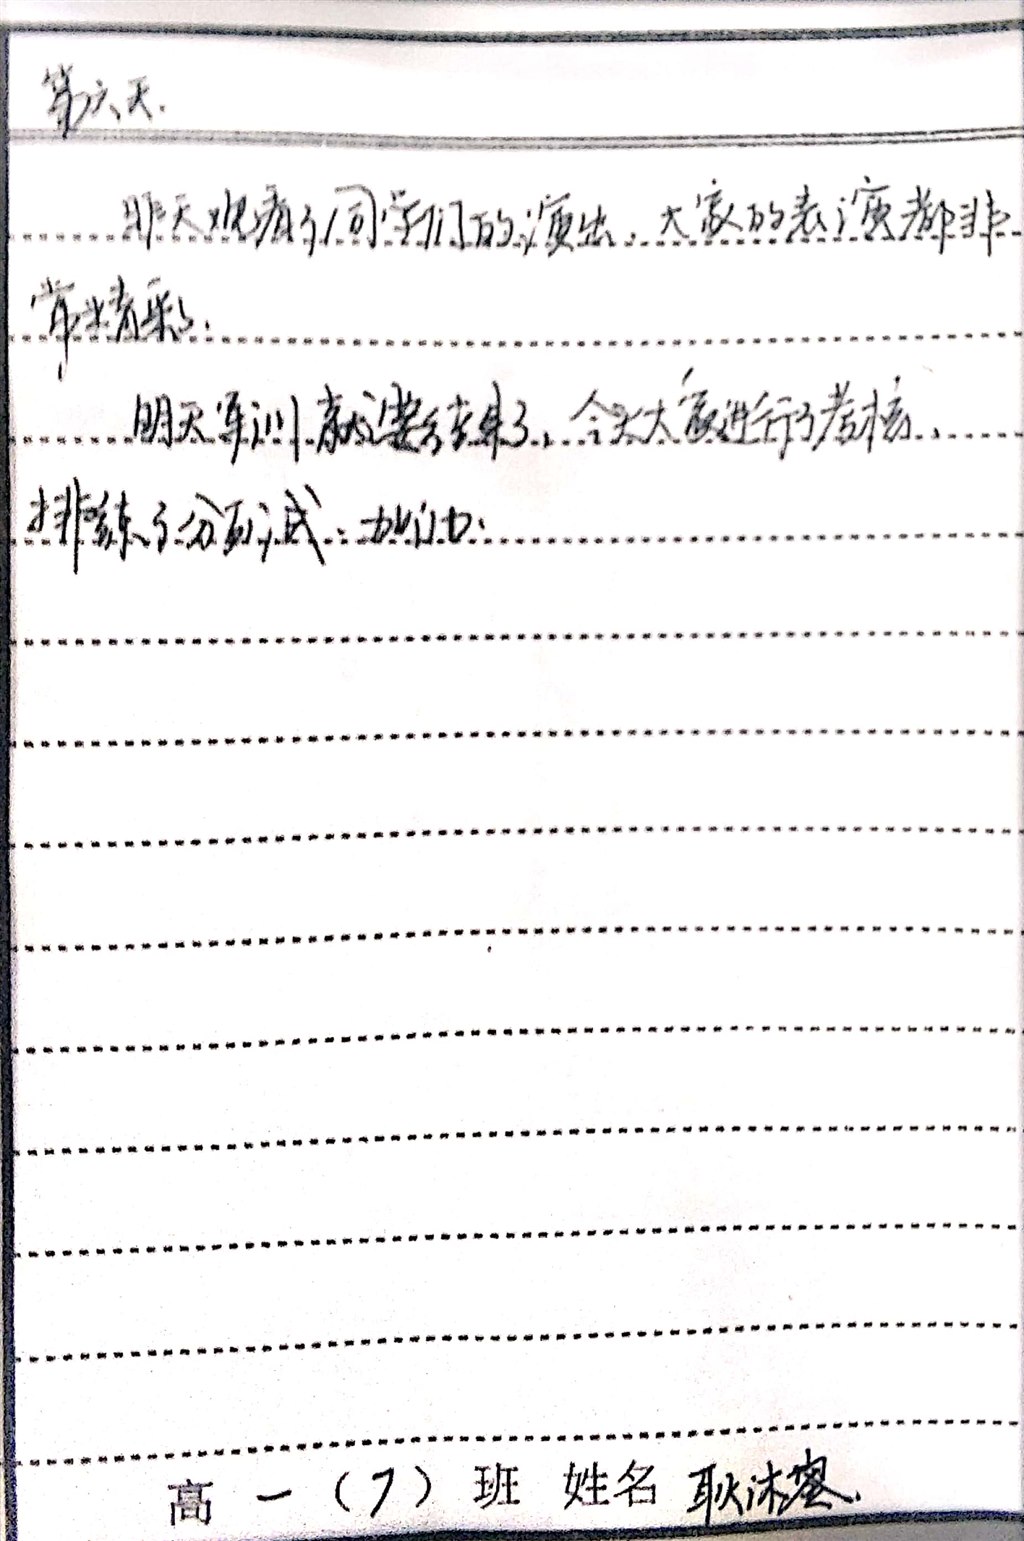 第六天.
昨天观看了同学们的演出,大家的表演都非
常精彩.
明天军训就要结束了,今天大家进行了考核,
排练了分列式.加油.
高一(7)班 姓名 耿沐